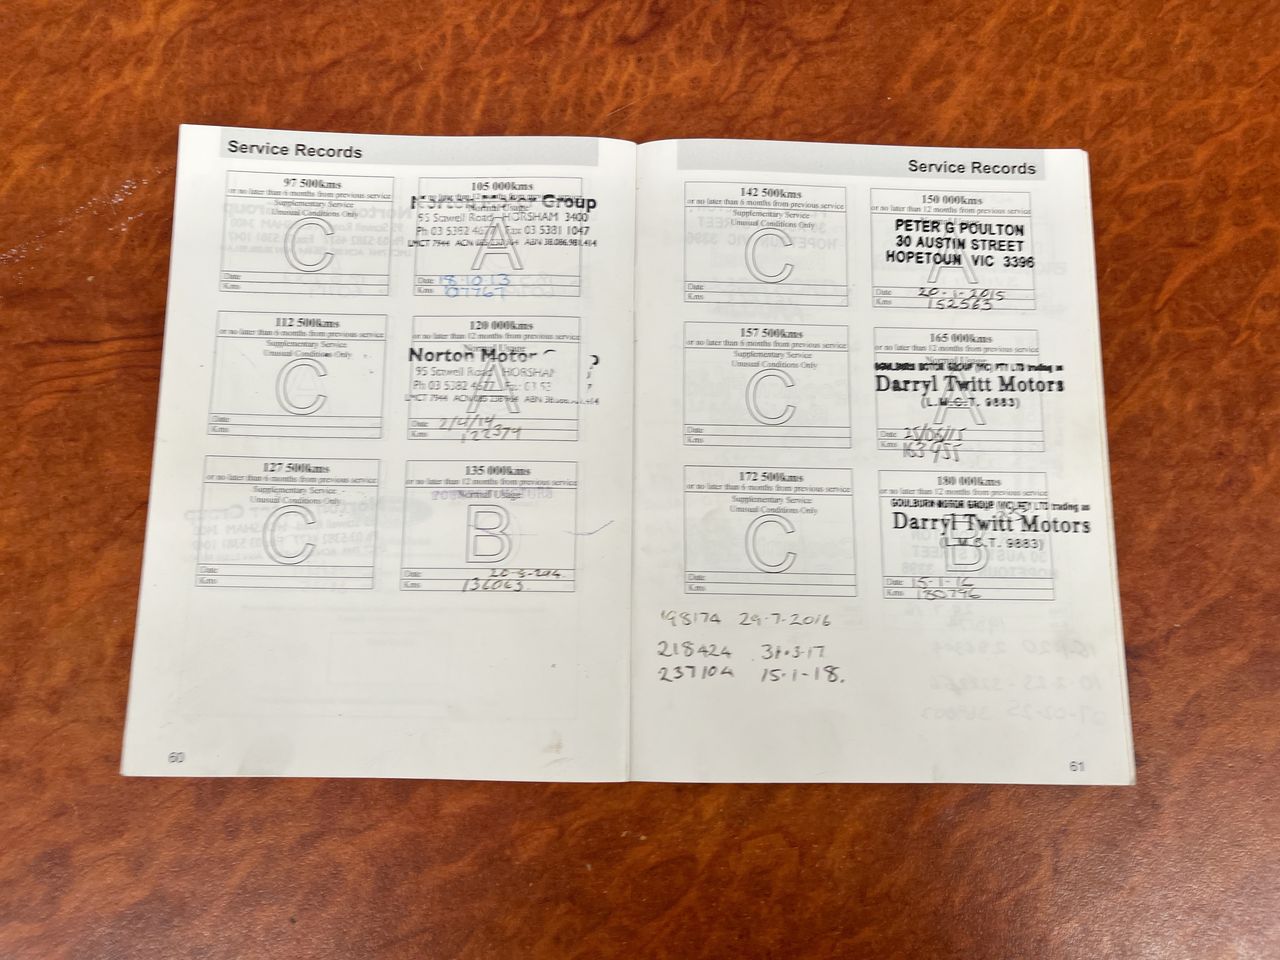 Service Records
97 500kms
or no later than 6 months from previous service
Supplementary Service
Unusual Conditions Only
C
Date
Kms
105 000kms
Group
55 Stawell Road HORSHAM 3400
Ph 03 5382 4677 Fax 03 5381 1047
LMCT 7944 ACN
A
Date 18.10.13
Kms 07767
112 500kms
or no later than 6 months from previous service
Supplementary Service
Unusual Conditions Only
C
Date
Kms
120 000kms
or no later than 12 months from previous service
Norton Motor
Stawell Road HORSHAM
Ph 03 5382 4677 Fax 03 53
LMCT 7944 ACN
A
Date 2/4/14
Kms 122374
127 500kms
or no later than 6 months from previous service
Supplementary Service
Unusual Conditions Only
C
Date
Kms
135 000kms
or no later than 12 months from previous service
Normal Usage
B
Date
Kms 136063
60
Service Records
142 500kms
or no later than 6 months from previous service
Supplementary Service
Unusual Conditions Only
C
Date
Kms
150 000kms
or no later than 12 months from previous service
PETER G POULTON
30 AUSTIN STREET
HOPETOUN VIC 3396
A
Date 20-1-2015
Kms 152563
157 500kms
or no later than 6 months from previous service
Supplementary Service
Unusual Conditions Only
C
Date
Kms
165 000kms
or no later than 12 months from previous service
Normal Usage
GOULBURN MOTOR GROUP (VIC) PTY LTD trading as
Darryl Twitt Motors
(L.M.C.T. 9883)
A
Date 25/06/15
Kms 163955
172 500kms
or no later than 6 months from previous service
Supplementary Service
Unusual Conditions Only
C
Date
Kms
180 000kms
or no later than 12 months from previous service
GOULBURN MOTOR GROUP (VIC) PTY LTD trading as
Darryl Twitt Motors
(L.M.C.T. 9883)
B
Date 15-1-16
Kms 180796
198174 29-7-2016
218424 31.3.17
237104 15-1-18.
61